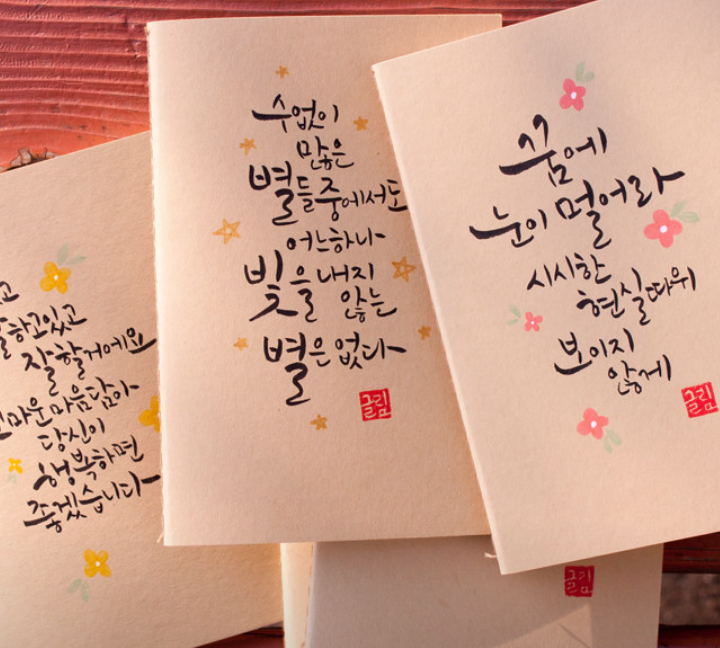 고
잘하고있고
잘할거에요
고마운마음담아
당신이
행복하면
좋겠습니다
수없이
많은
별들중에서도
어느하나
빛을내지
않는
별은없다
글림
꿈에
눈이멀어라
시시한
현실따위
보이지
않게
글림
글림